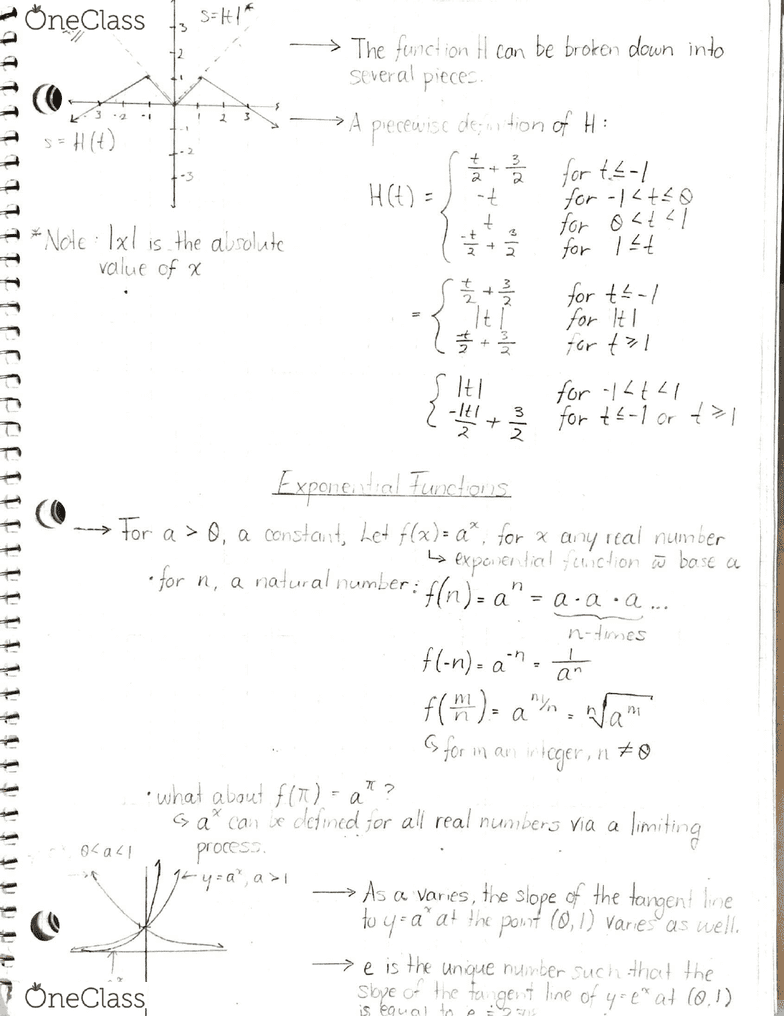 OneClass
s=|t|*
3
2
1
-3 -2 -1 1 2 3 s
-1
-2
-3
s = H(t)
*Note: |x| is the absolute
value of x
→ The function H can be broken down into
several pieces.
→ A piecewise definition of H:
H(t) = { t/2 + 3/2 for t≤-1
-t for -1<t≤0
t for 0<t<1
-t/2 + 3/2 for 1≤t
= { t/2 + 3/2 for t≤-1
|t| for |t|
-t/2 + 3/2 for t≥1
{ |t| for -1<t<1
-|t|/2 + 3/2 for t≤-1 or t≥1
Exponential Functions
→ For a > 0, a constant, Let f(x)= aˣ, for x any real number
↳ exponential function w̄ base a
• for n, a natural number: f(n) = aⁿ = a·a·a...
n-times
f(-n) = a⁻ⁿ = 1/aⁿ
f(m/n) = a^(m/n) = ⁿ√aᵐ
↳ for m an integer, n ≠ 0
• what about f(π) = a^π ?
↳ aˣ can be defined for all real numbers via a limiting
process.
0<a<1
← y=aˣ, a>1
→ As a varies, the slope of the tangent line
to y=aˣ at the point (0,1) varies as well.
→ e is the unique number such that the
slope of the tangent line of y=eˣ at (0,1)
is equal to
OneClass